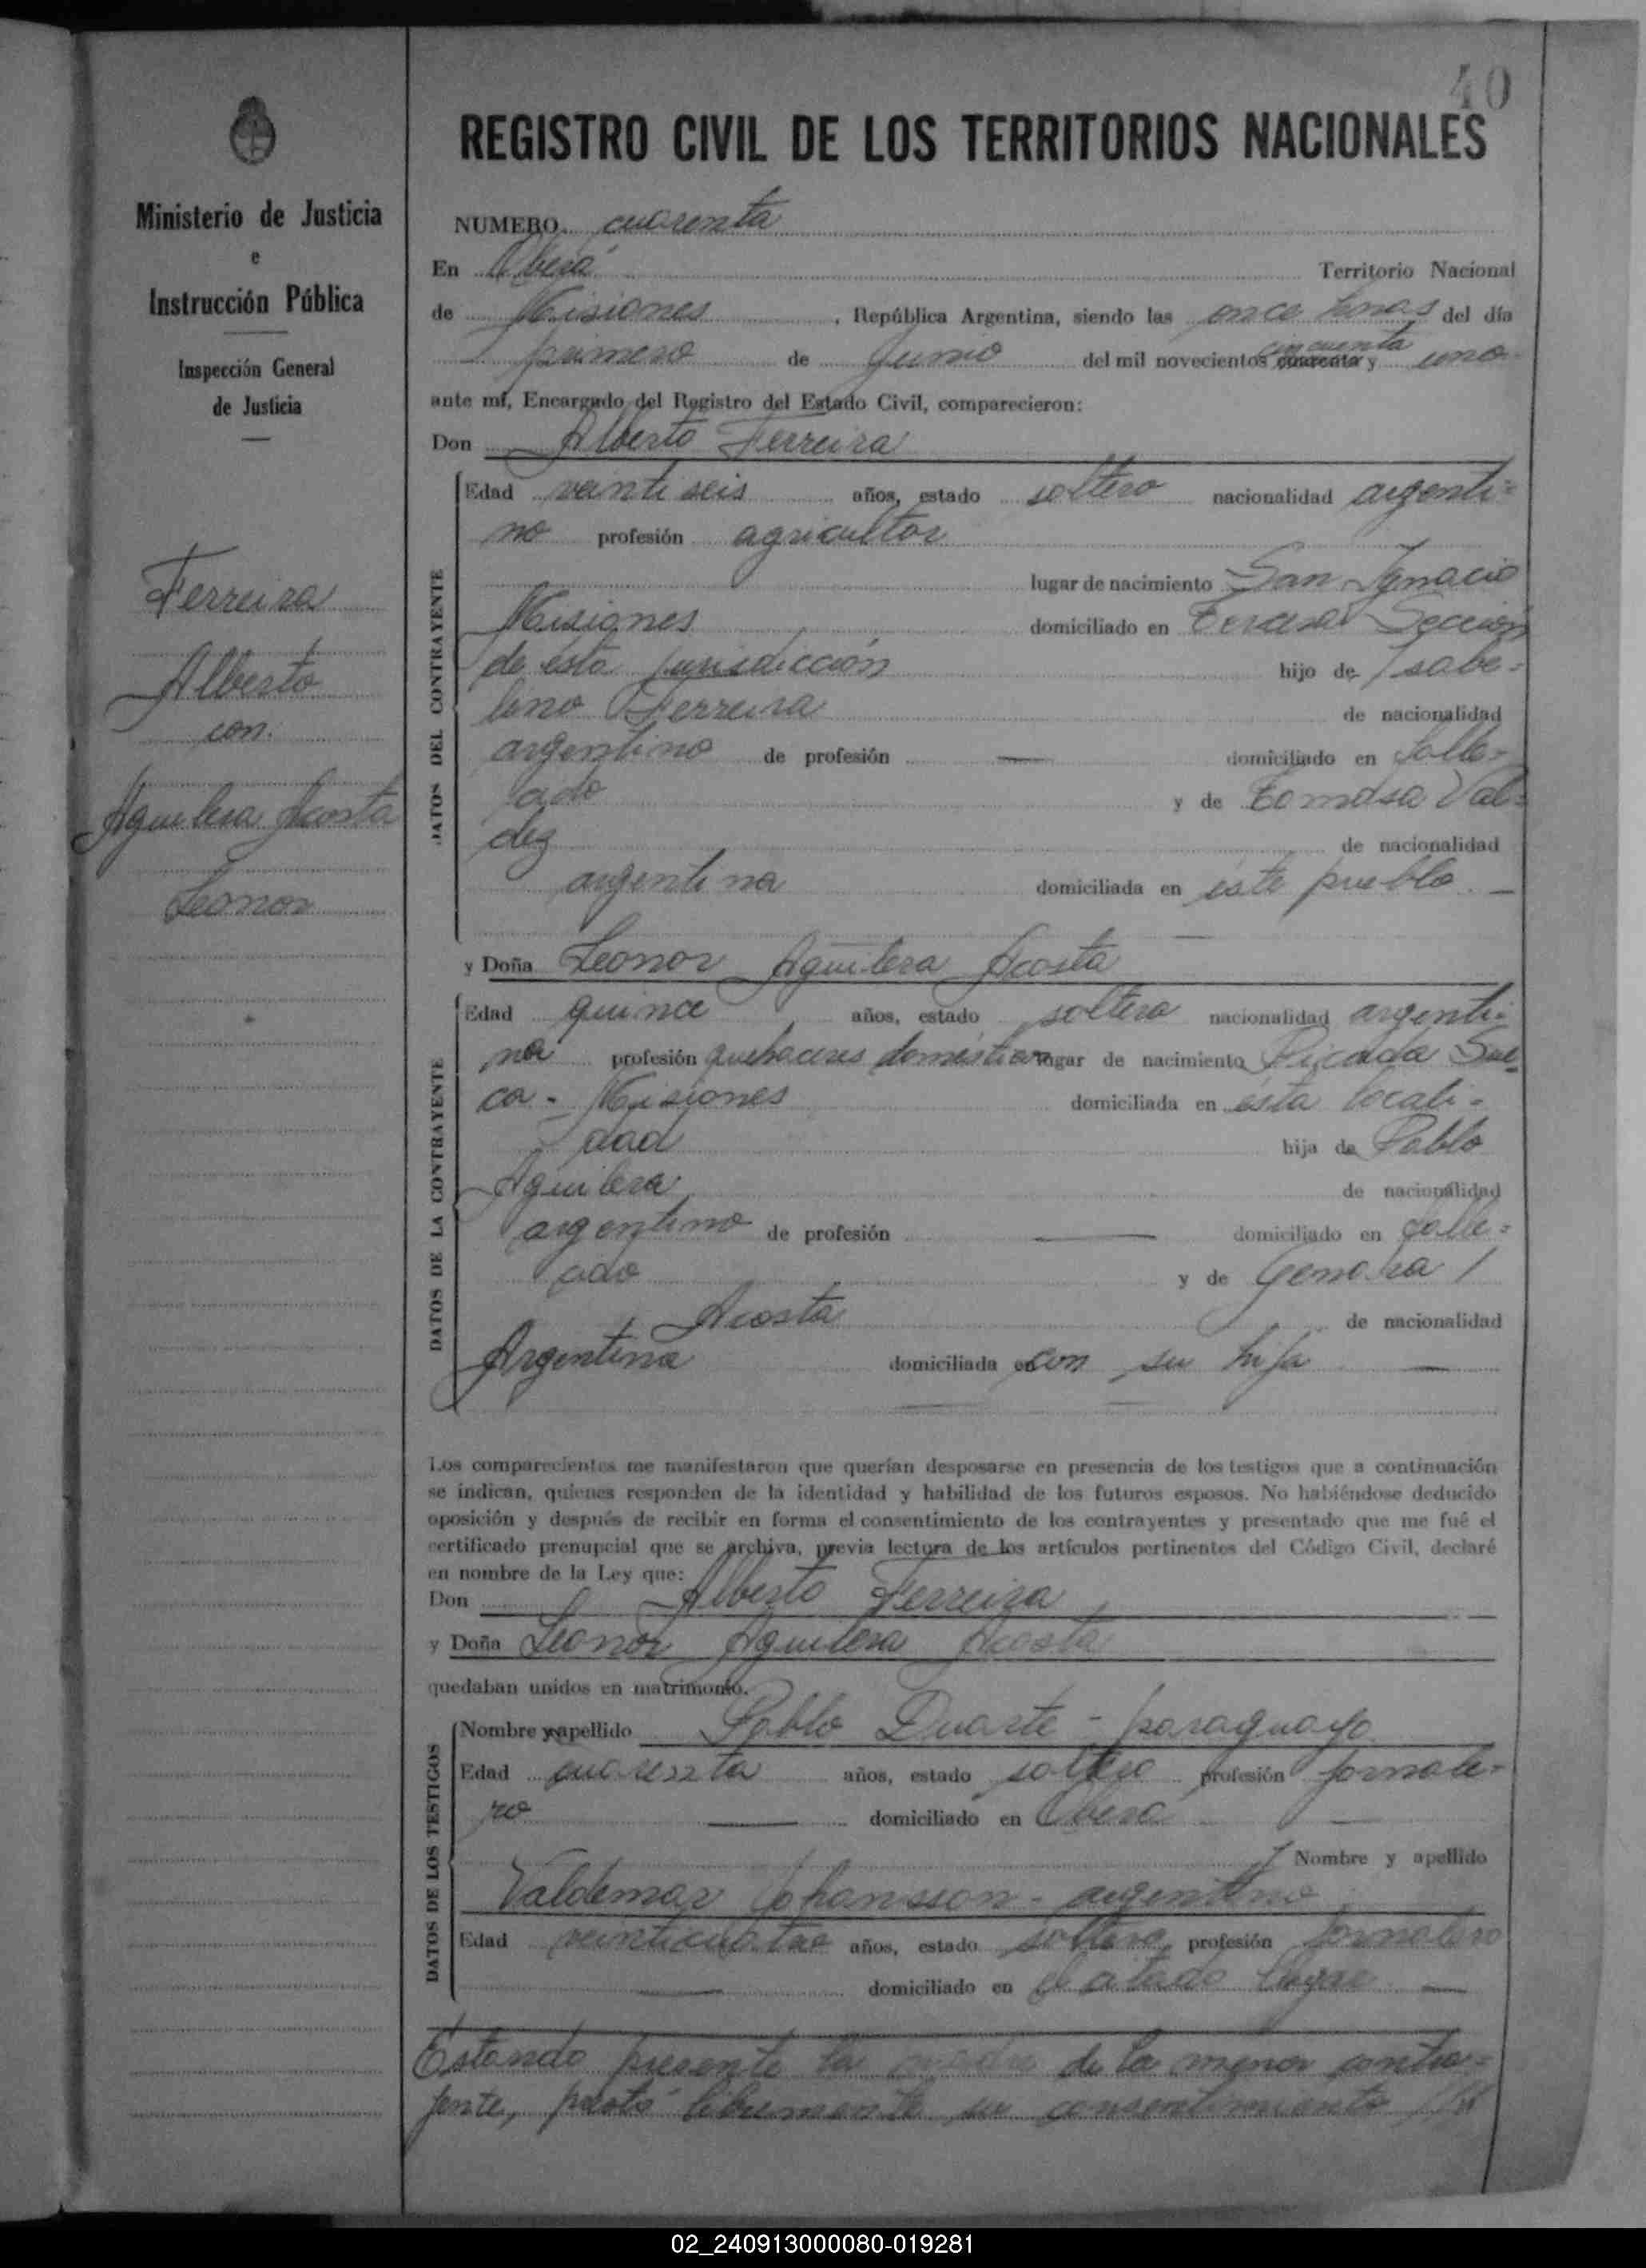 40
REGISTRO CIVIL DE LOS TERRITORIOS NACIONALES
Ministerio de Justicia
e
Instrucción Pública
Inspección General
de Justicia
Ferreira
Alberto
con
Aguilera Acosta
Leonor
NUMERO cuarenta
En Oberá Territorio Nacional
de Misiones, República Argentina, siendo las once horas del día
primero de Junio del mil novecientos cuarenta cincuenta y uno
ante mí, Encargado del Registro del Estado Civil, comparecieron:
Don Alberto Ferreira
DATOS DEL CONTRAYENTE
Edad veinti seis años, estado soltero nacionalidad argenti=
no profesión agricultor
lugar de nacimiento San Ignacio
Misiones domiciliado en Tercera Sección
de esta jurisdicción hijo de Isabe=
lino Ferreira de nacionalidad
argentino de profesión — domiciliado en falle=
cido y de Tomasa Val=
dez de nacionalidad
argentina domiciliada en este pueblo. —
y Doña Leonor Aguilera Acosta
DATOS DE LA CONTRAYENTE
Edad quince años, estado soltera nacionalidad argenti-
na profesión quehaceres domésticos lugar de nacimiento Picada Sue-
ca - Misiones domiciliada en esta locali-
dad hija de Pablo
Aguilera de nacionalidad
argentino de profesión — domiciliado en falle=
cido y de
Acosta de nacionalidad
Argentina domiciliada en con su hija —
Los comparecientes me manifestaron que querían desposarse en presencia de los testigos que a continuación
se indican, quienes responden de la identidad y habilidad de los futuros esposos. No habiéndose deducido
oposición y después de recibir en forma el consentimiento de los contrayentes y presentado que me fué el
certificado prenupcial que se archiva, previa lectura de los artículos pertinentes del Código Civil, declaré
en nombre de la Ley que:
Don Alberto Ferreira
y Doña Leonor Aguilera Acosta
quedaban unidos en matrimonio.
DATOS DE LOS TESTIGOS
Nombre y apellido Pablo Duarte - paraguayo
Edad cuarenta años, estado soltero profesión jornale=
ro — domiciliado en Oberá —
Nombre y apellido
Valdemar Johansson - argentino
Edad veinticuatro años, estado soltero profesión jornalero
— domiciliado en el citado lugar —
Estando presente la madre de la menor contra=
yente, prestó libremente su consentimiento
02_240913000080-019281